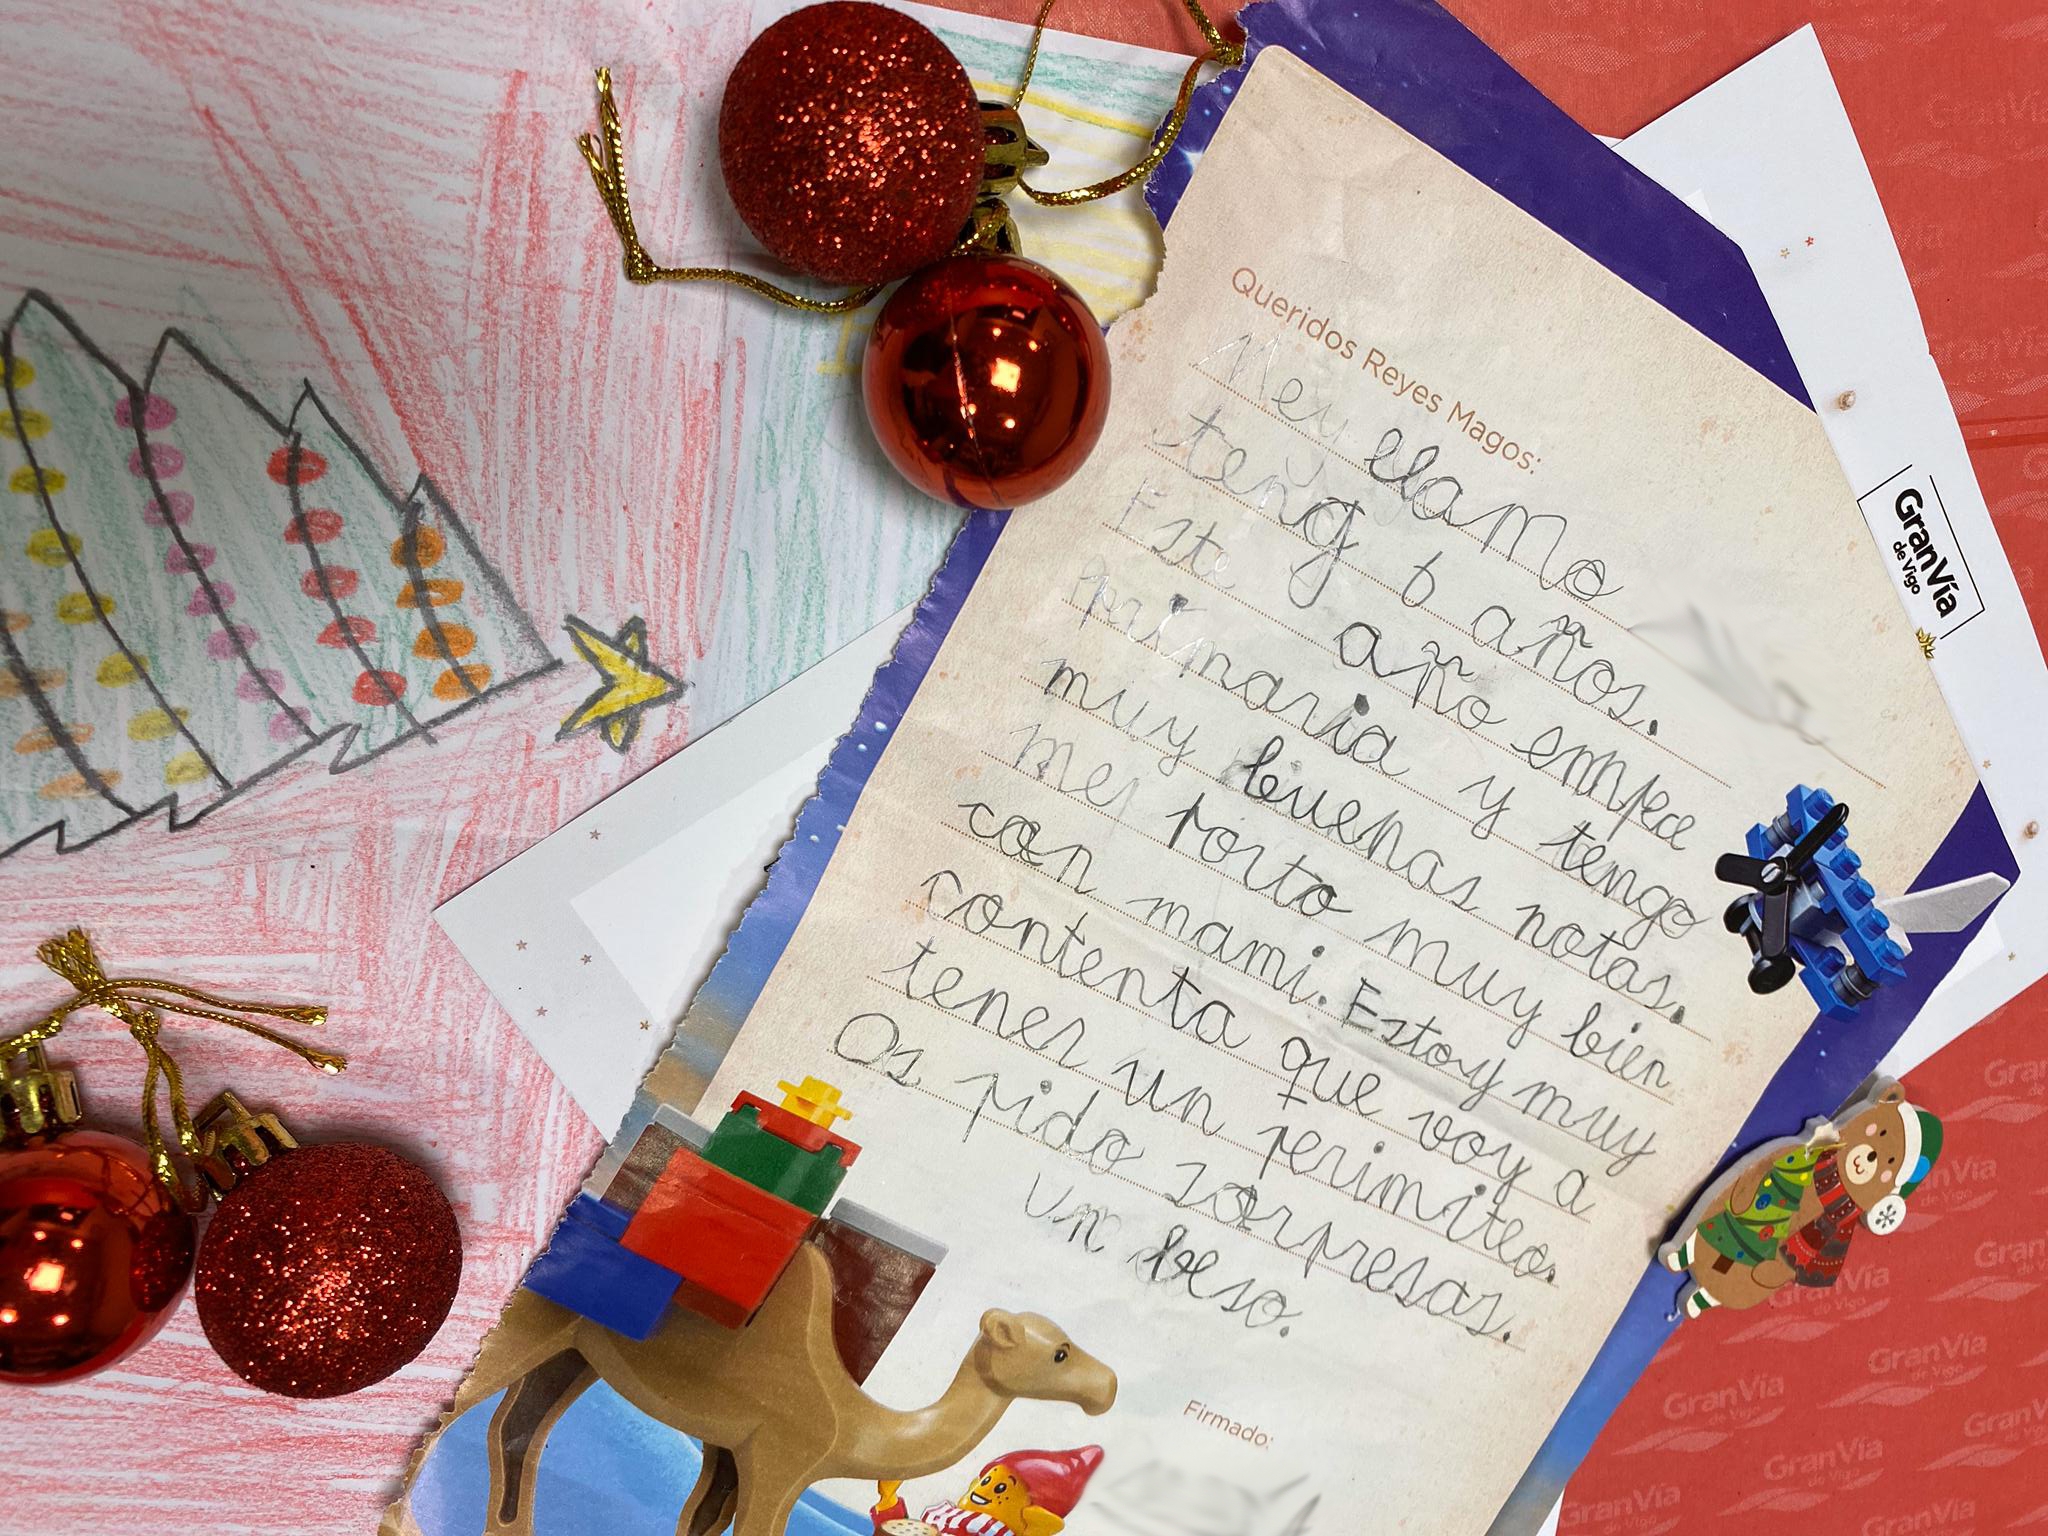 Queridos Reyes Magos:
Mey llamo
teng 6 años.
Este año empcé
Primaria y tengo
muy buenas notas.
Me porto muy bien
con mami. Estoy muy
contenta que voy a
tener un perimiteo.
Os pido sorpresas.
Un beso.
Firmado:
GranVía
de Vigo
GranVía
de Vigo
GranVía
de Vigo
GranVía
de Vigo
GranVía
de Vigo